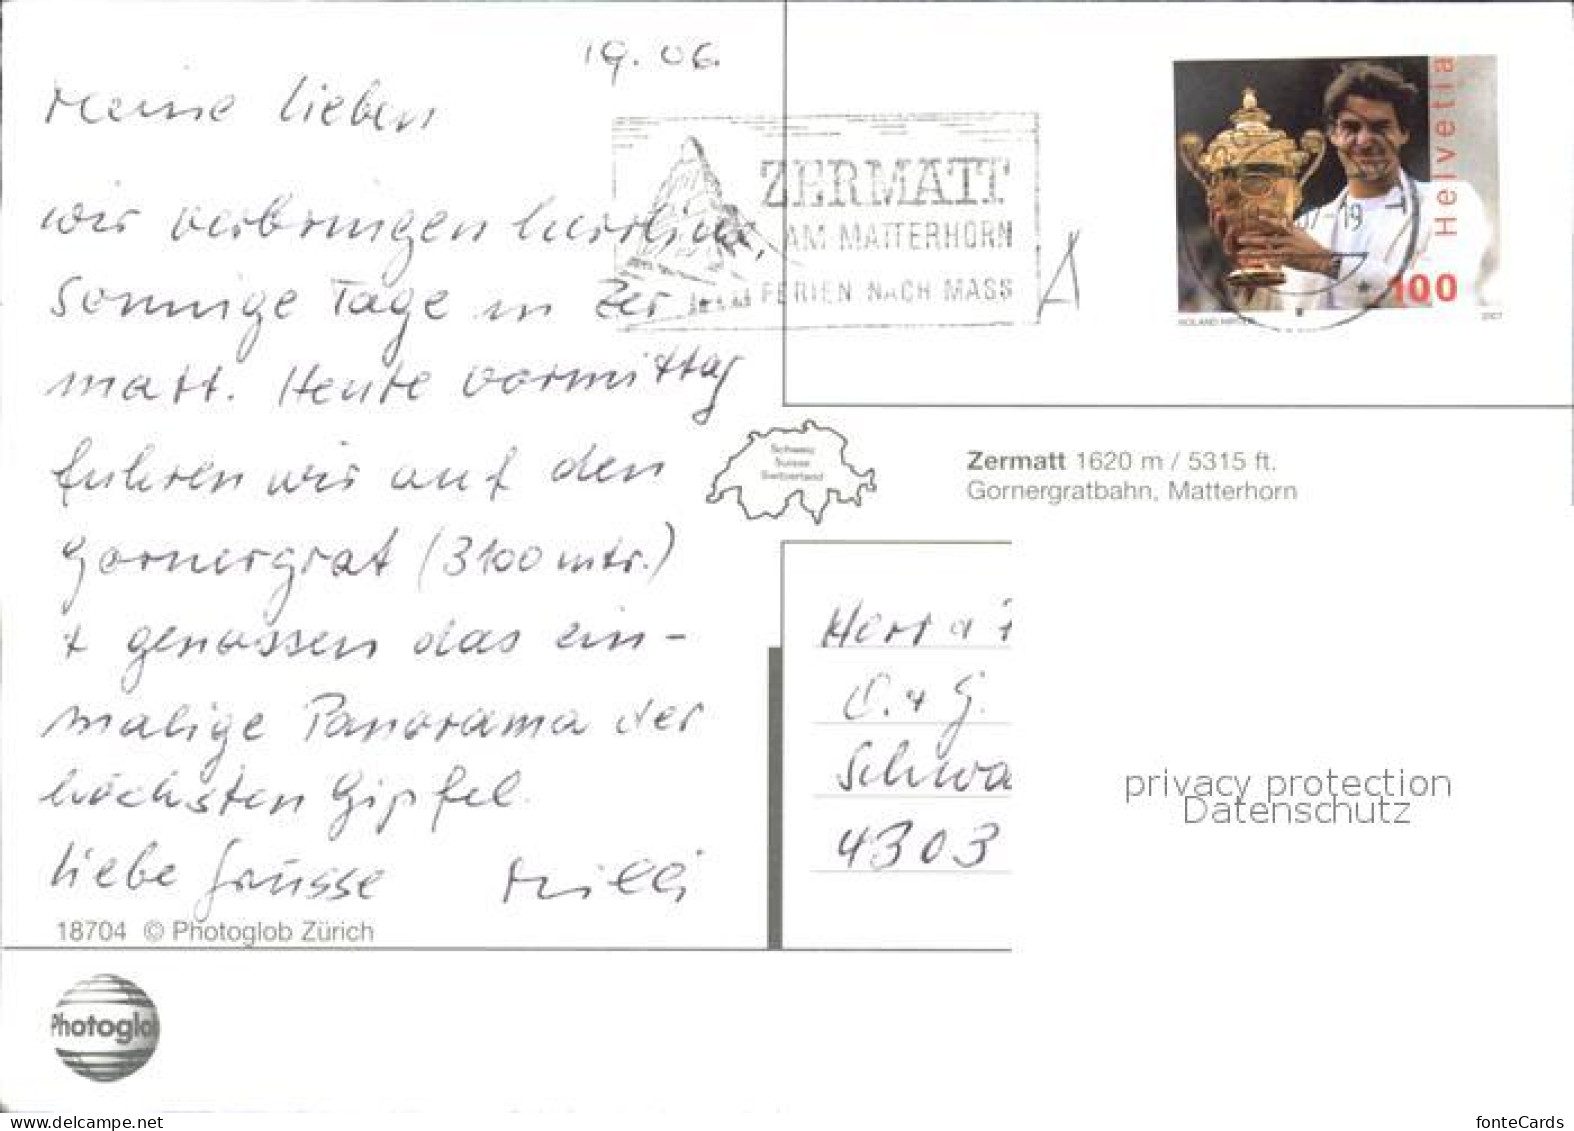 19. 06.
Meine lieben
wir verbringen herrliche,
sonnige Tage in Zer
matt. Heute vormittag
fuhren wir auf den
Gornergrat (3100 mtr.)
+ genossen das ein-
malige Panorama der
höchsten Gipfel.
liebe Grüsse Milli
18704 © Photoglob Zürich
Photoglob
ZERMATT
AM MATTERHORN
FERIEN NACH MASS
A
Helvetia
07-19
100
2007
Schweiz
Suisse
Switzerland
Zermatt 1620 m / 5315 ft.
Gornergratbahn, Matterhorn
Herr
C. + G.
Schwa
4303
privacy protection
Datenschutz
www.delcampe.net
fonteCards